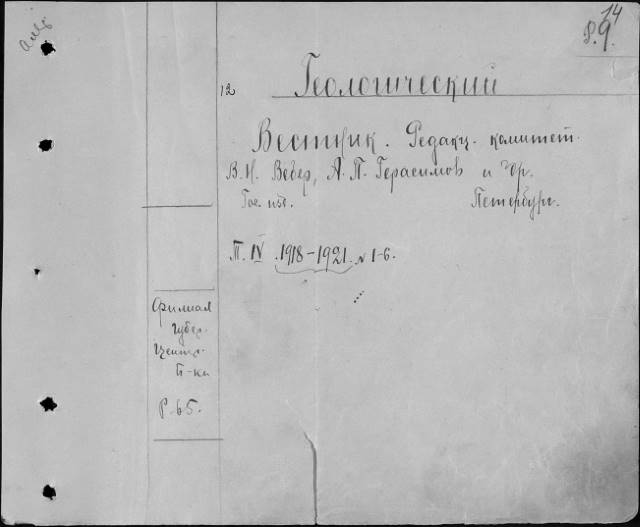 14
Р.9.
12
Геологический
Вестник. Редакц. комитет.
В.Н. Вебер, А.П. Герасимов и др.
Гос. изд. Петербург.
Т. IV 1918–1921. № 1-6.
Филиал
Губер.
Центр.
Б-ки
Р-65.